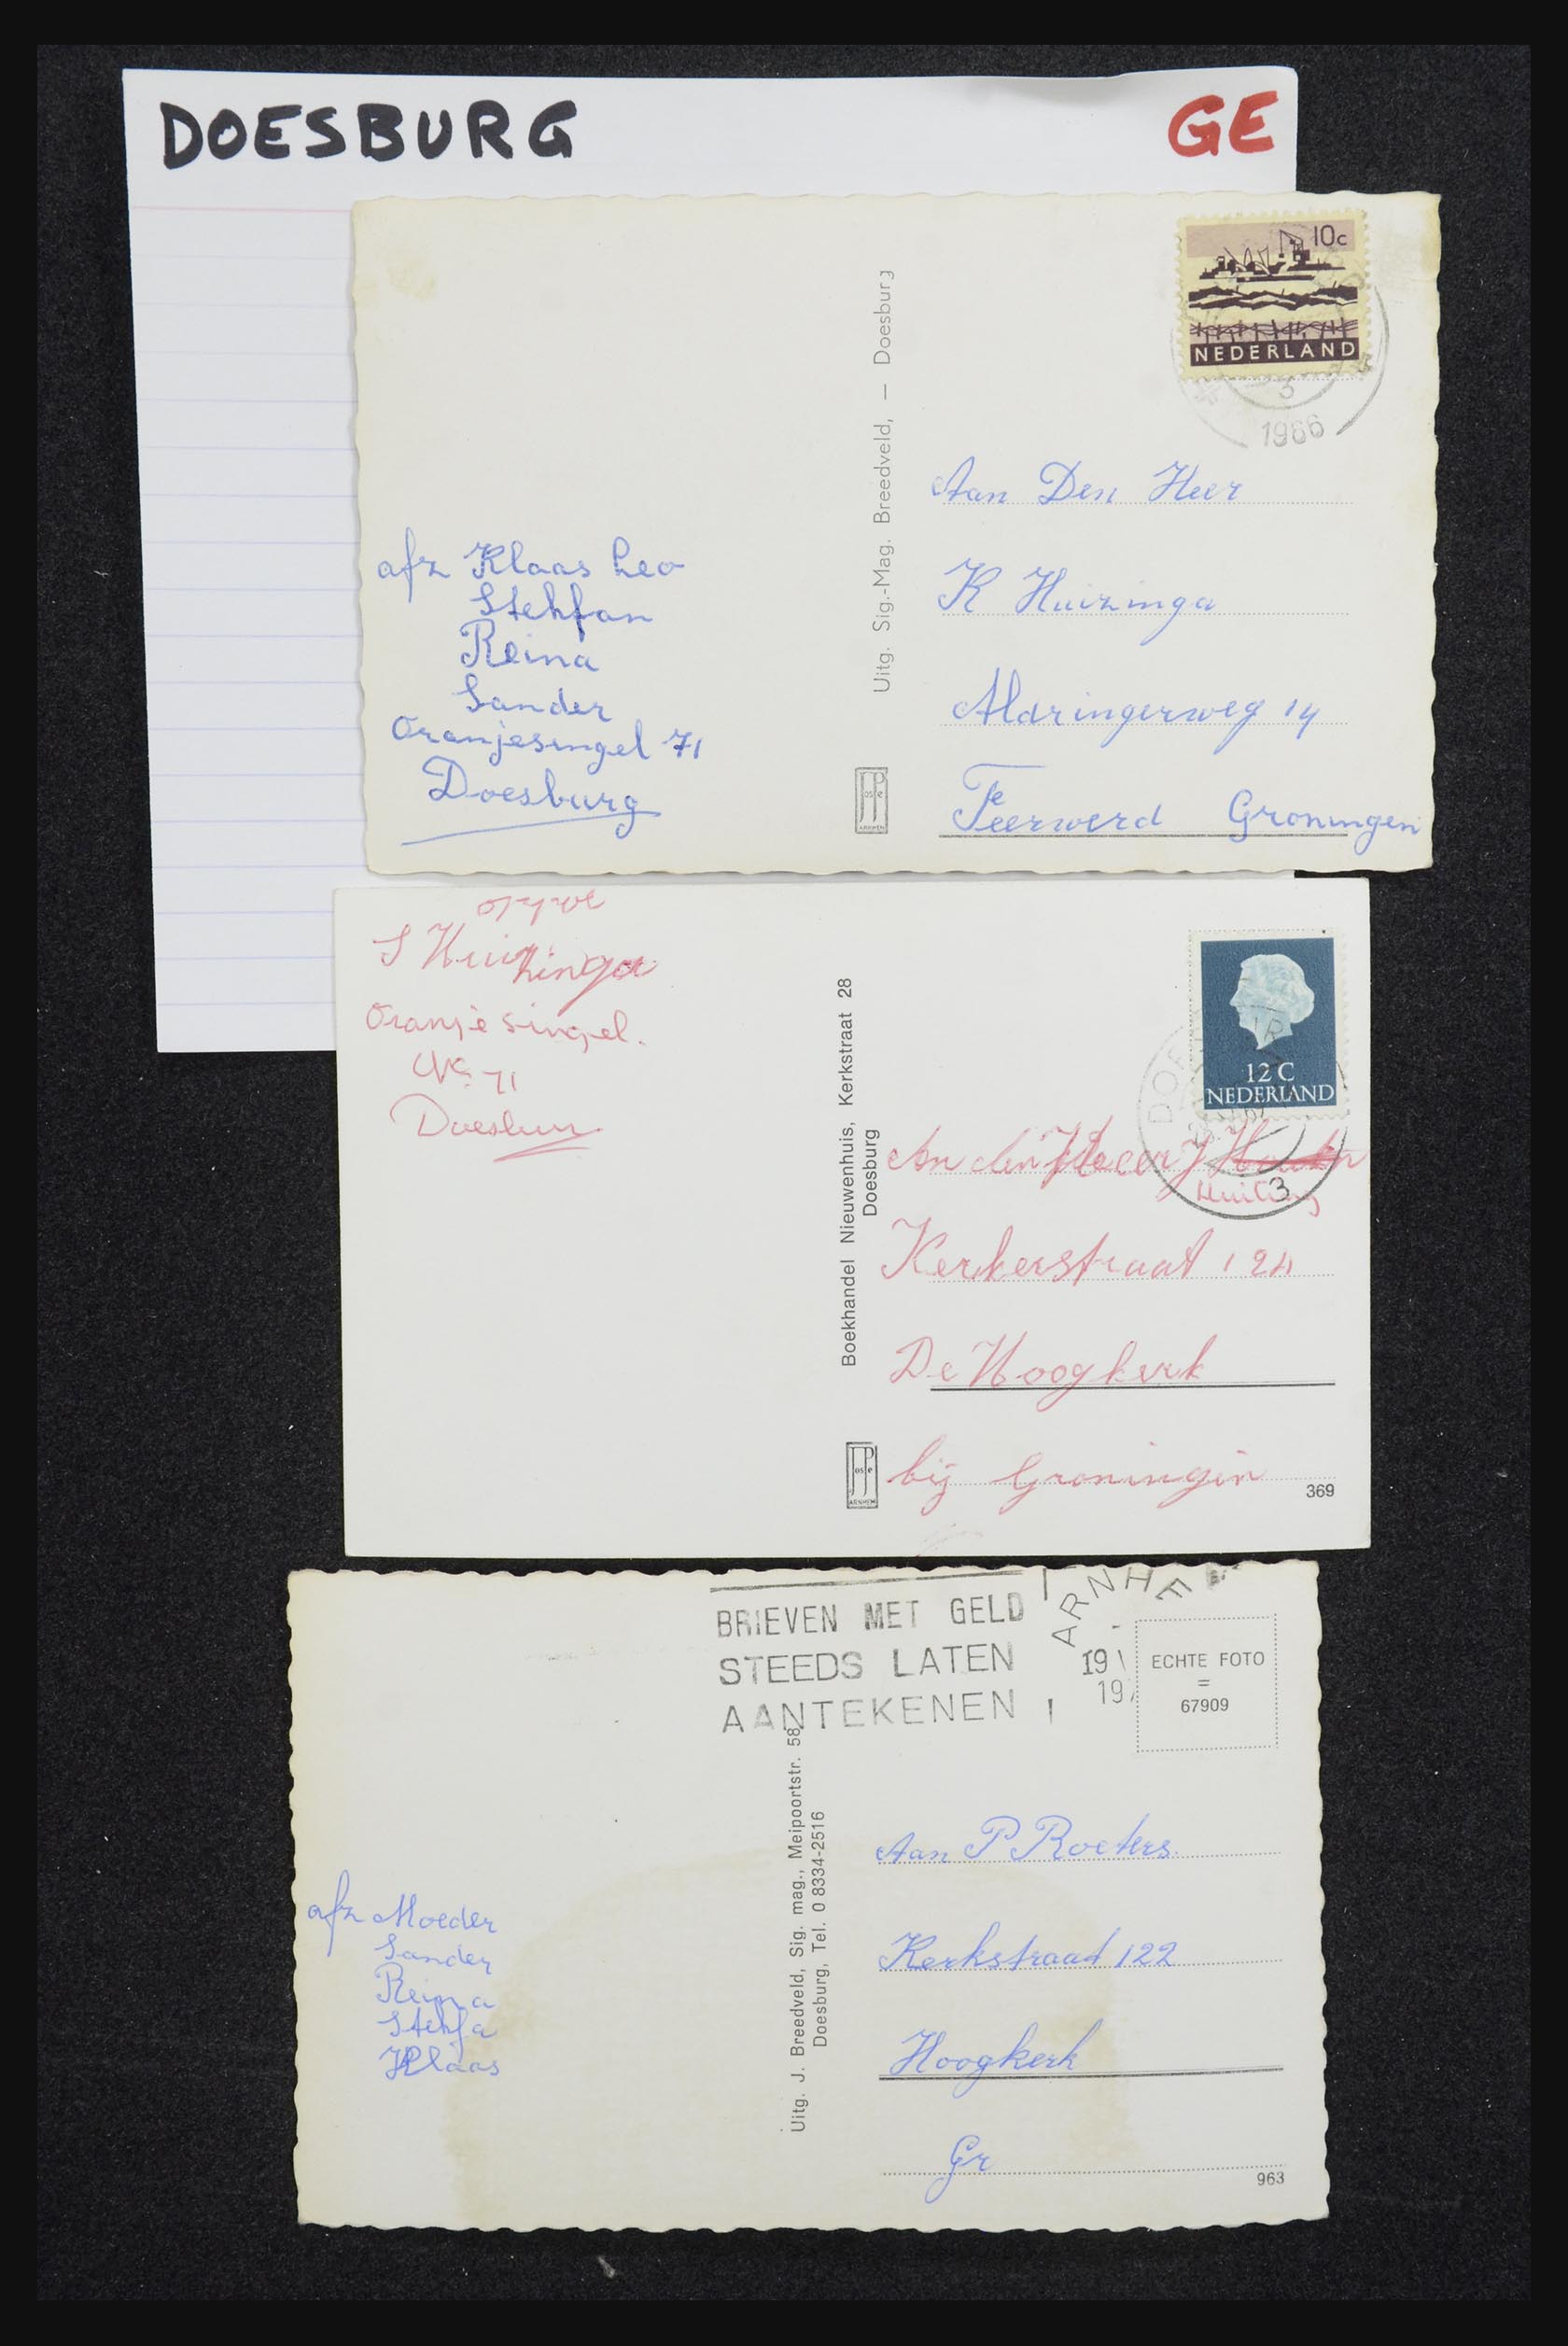 DOESBURG
GE
10c
NEDERLAND
3
1966
Uitg. Sig.-Mag. Breedveld, — Doesburg
afz Klaas Leo
Stehfan
Reina
Sander
Oranjesingel 71
Doesburg
Aan Den Heer
K Huizinga
Aldringerweg 14
Feerwerd Groningen
JosPé
ARNHEM
S Huizinga
Oranjesingel.
No 71
Doesbur
Boekhandel Nieuwenhuis, Kerkstraat 28
Doesburg
12 C
NEDERLAND
3
An den Heer J
Huiting
Kerkerstraat 124
De Hoogkerk
bij Groningin
JosPé
ARNHEM
369
BRIEVEN MET GELD
STEEDS LATEN
AANTEKENEN
ARNHE
19
19
ECHTE FOTO
=
67909
Uitg. J. Breedveld, Sig. mag., Meipoortstr. 58,
Doesburg, Tel. 0 8334-2516
afz Moeder
Sander
Reina
Stehfa
Klaas
Aan P Roeters
Kerkstraat 122
Hoogkerk
Gr
963